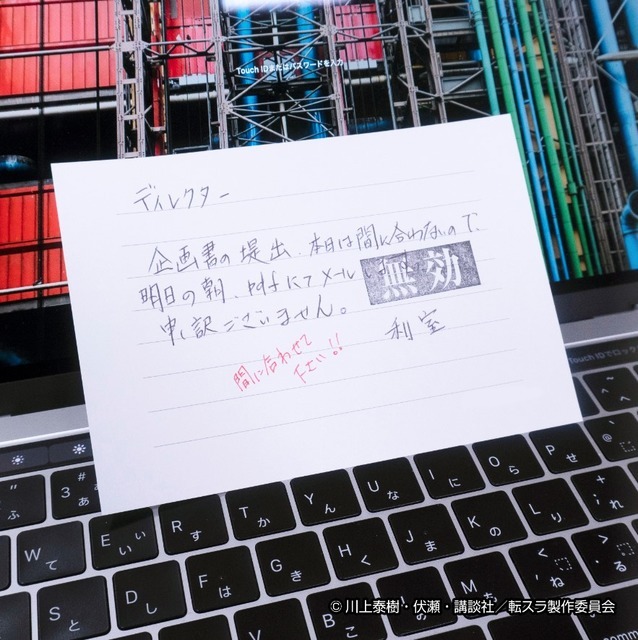 Touch IDまたはパスワードを入力
ディレクター
企画書の提出、本日は間に合わないので、
明日の朝、pdfにてメール
無効
申し訳ございません。
利室
間に合わせて
下さい!!
Touch IDでロック
3 # あ
W て
E い ぃ
R す
T か
Y ん
U な
I に
O ら
P せ
S と
D し
F は
G き
H く
J ま
K の
L り
+ ; れ
B こ
N み
M も
< 、 ね
> 。 る
comm
©川上泰樹・伏瀬・講談社/転スラ製作委員会